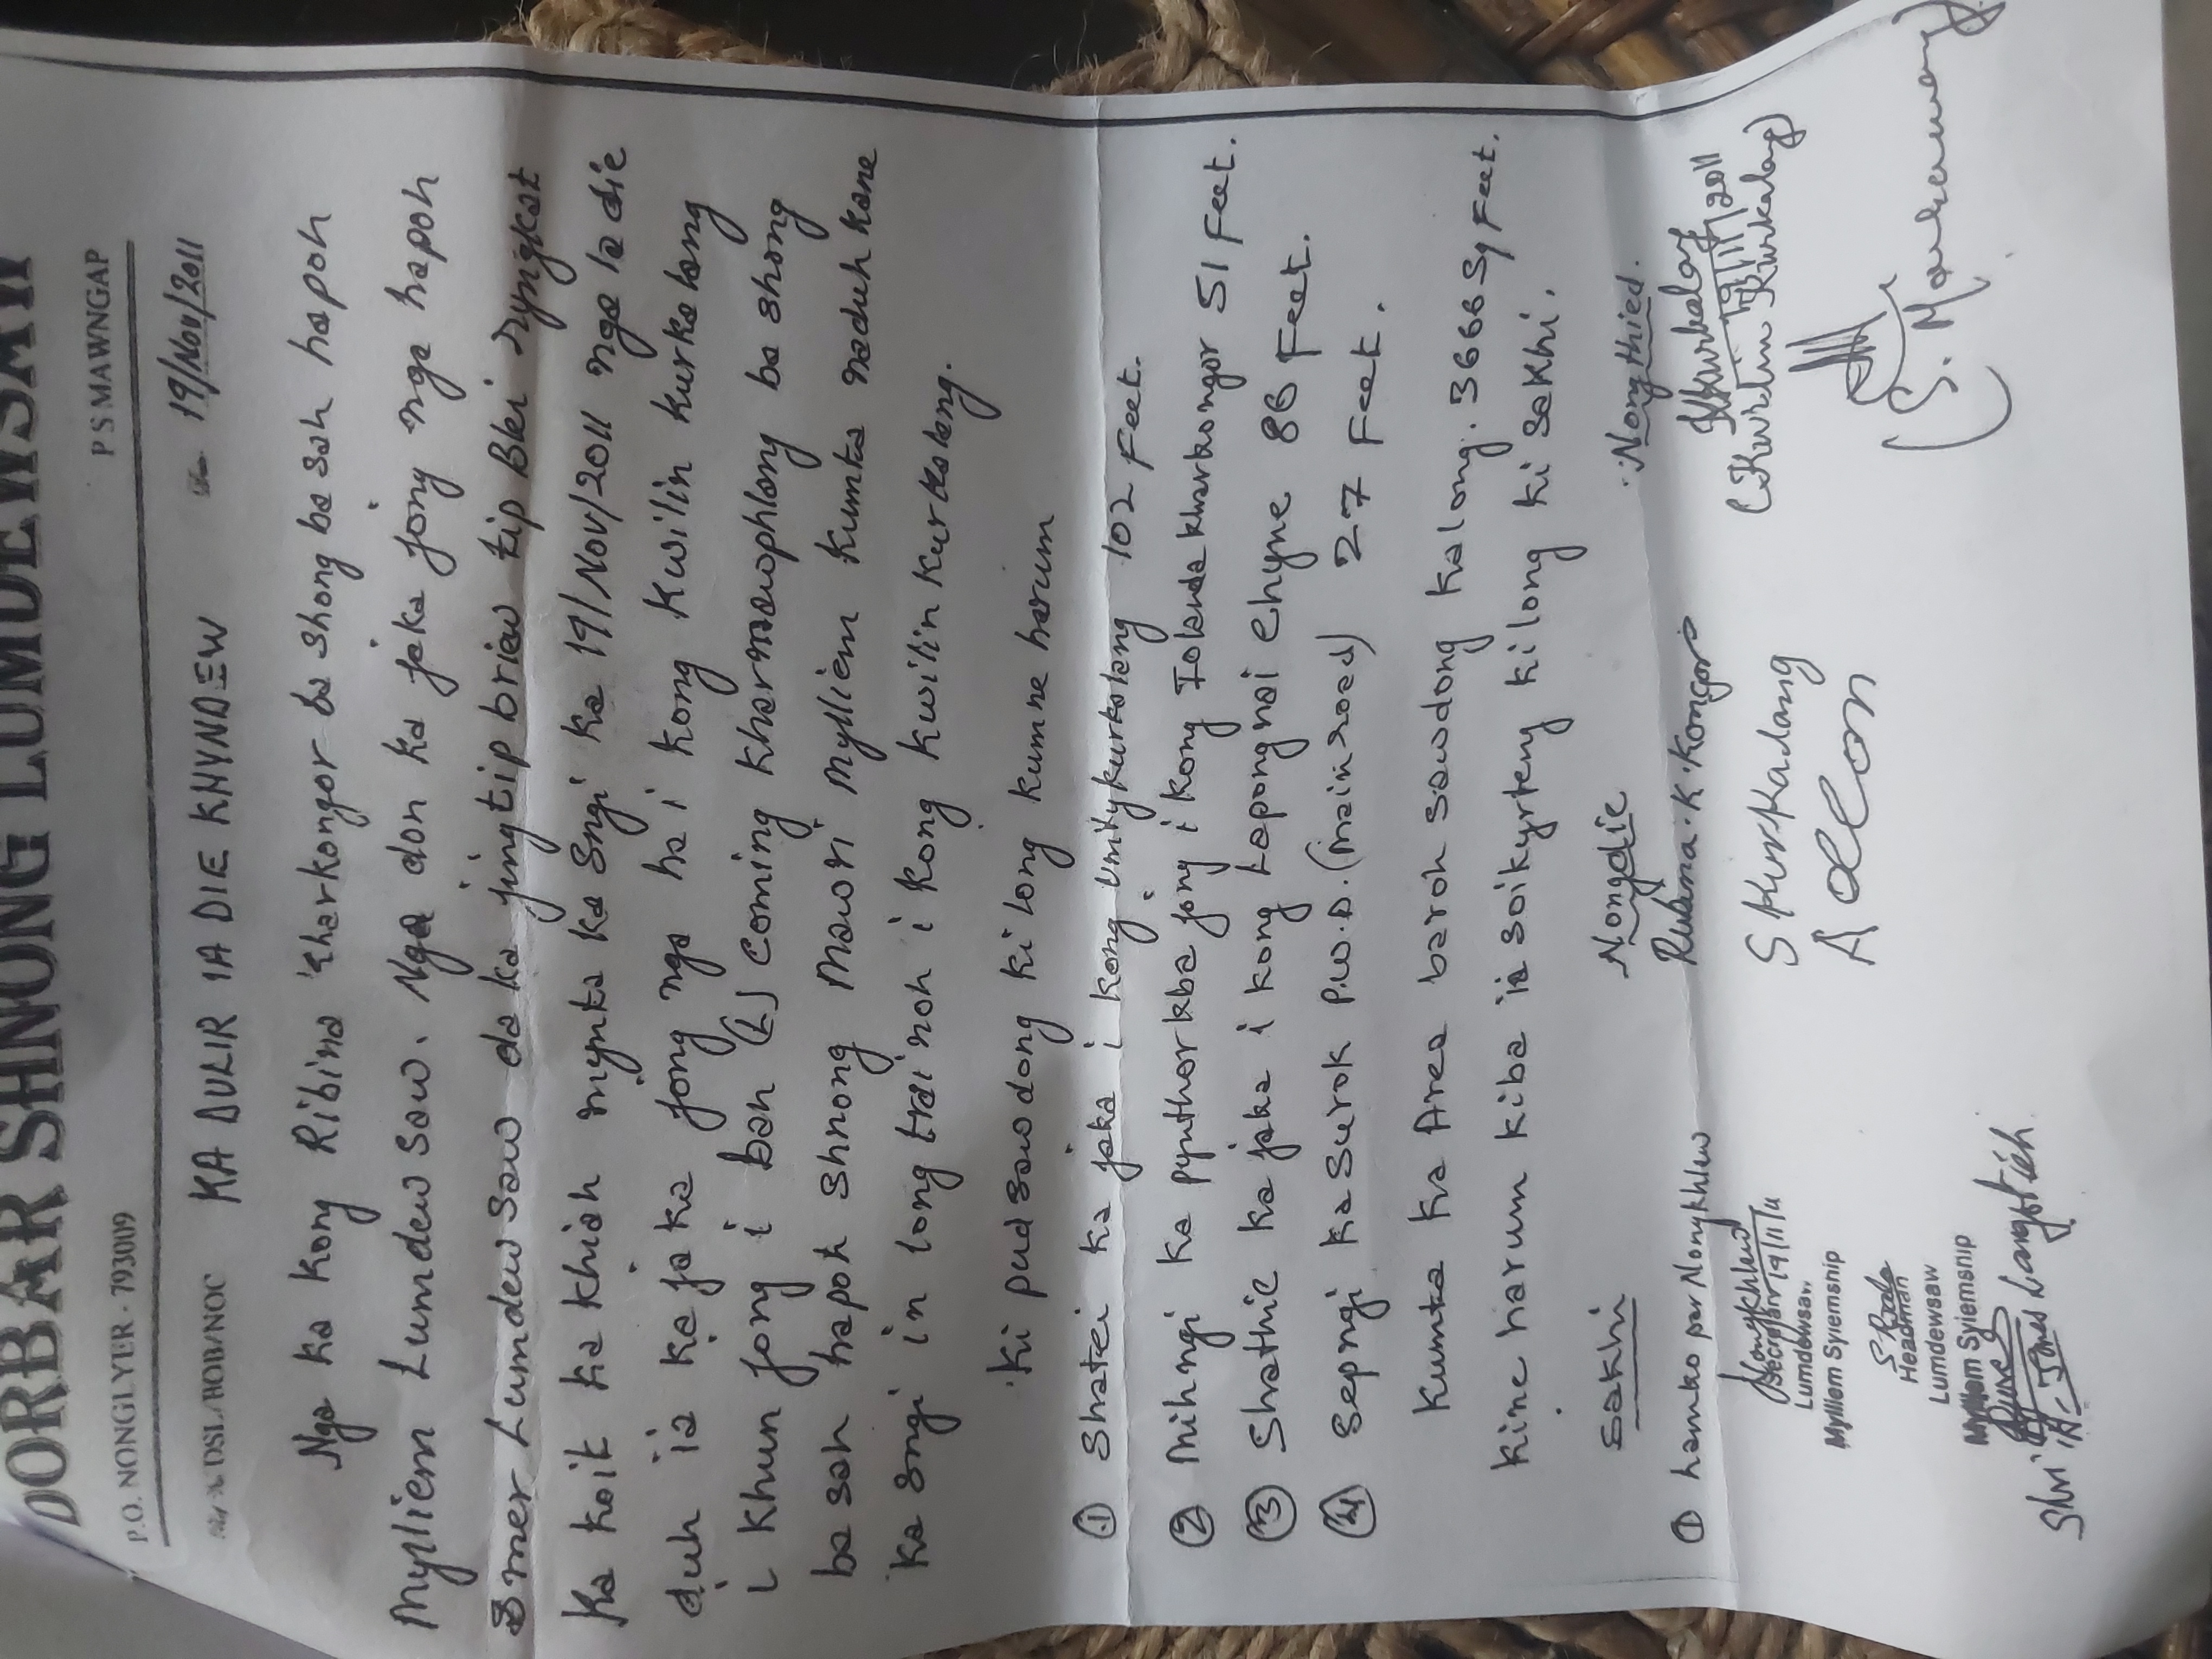 DORBAR SHNONG LUMDEWSAW
P.O. NONGLYER - 793009 P S MAWNGAP
DSL/HOB/NOC 19/Nov/2011
KA DULIR IA DIE KHYNDEW
Nga ka kong Ribina Kharkongor ba shong ba sah hapoh
Mylliem Lumdew Saw. Nga don ka jaka jong nga hapoh
Lumdew Saw da ka jingtip briew tip Blei ryngkat
Ka koit ka khiah mynta ka sngi ka 19/Nov/2011 nga la die
duh ia ka jaka jong nga ha i kong Kwilin Kurkalang
i khun jong i bah (L) Coming Kharmawphlang ba shong
ba sah hapoh shnong Mawri Mylliem Kumta naduh kane
ka sngi in long trai noh i kong Kwilin Kurkalang.
Ki pud sawdong ki long kumne harum
① Shatei ka jaka i kong Unitykurkalang 102 Feet.
② Mihngi ka pynthorkba jong i kong Iokudakharkongor 51 Feet.
③ Shathie ka jaka i kong Lapongnai Chyne 86 Feet.
④ Sepngi ka Surok P.W.D. (mainroad) 27 Feet.
Kumta ka Area baroh sawdong kalong. 3666 Sq Feet.
Kine harum kiba ia soikyrteng ki long ki sakhi.
Sakhi Nongdie Nongthied.
① hamko par Nongkhlaw Rubina. K. Kongor
Nongkhlaw 19/11/11 S Kurkalang 19/11/2011
Secretary (Kwilin Kurkalang)
Lumdewsaw.
Mylliem Syiemship
Headman
Lumdewsaw
Mylliem Syiemship
Shri Jones Langstieh